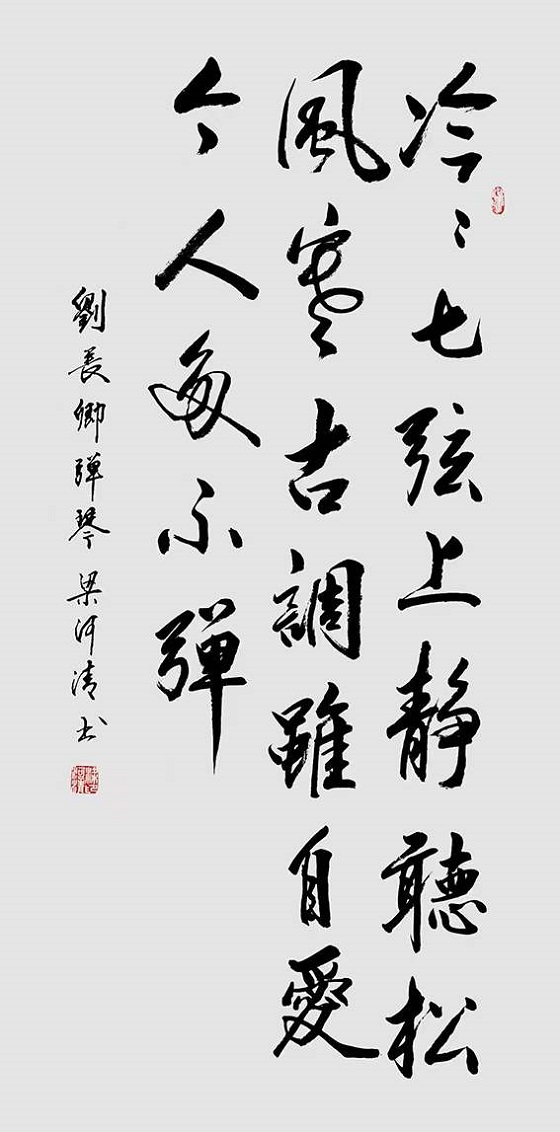 冷〻七弦上靜聽松
風寒古調雖自愛
今人多不彈
劉長卿彈琴 梁河清书